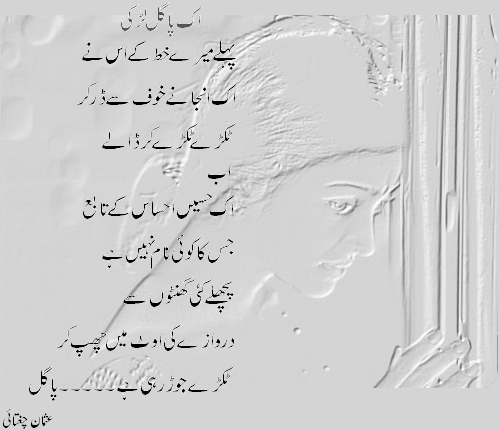 اک پاگل لڑکی
پہلے میرے خط کے اس نے
اک انجانے خوف سے ڈر کر
ٹکڑے ٹکڑے کر ڈالے
اب
اک حسیں احساس کے تابع
جس کا کوئی نام نہیں ہے
پچھلے کئی گھنٹوں سے
دروازے کی اوٹ میں چھپ کر
ٹکڑے جوڑ رہی ہے۔۔۔۔۔۔پاگل
عثمان چغتائی